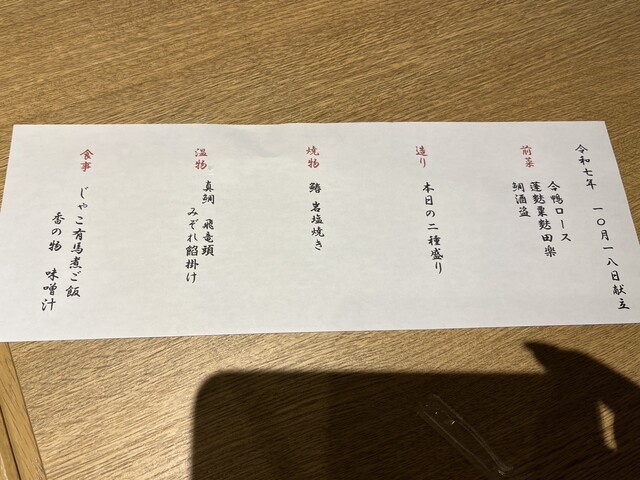 令和七年　一〇月一八日献立
前菜
合鴨ロース
蓬麩粟麩田楽
鯛酒盗
造り
本日の二種盛り
焼物
鰆　岩塩焼き
温物
真鯛　飛竜頭
みぞれ餡掛け
食事
じゃこ有馬煮ご飯
香の物　味噌汁